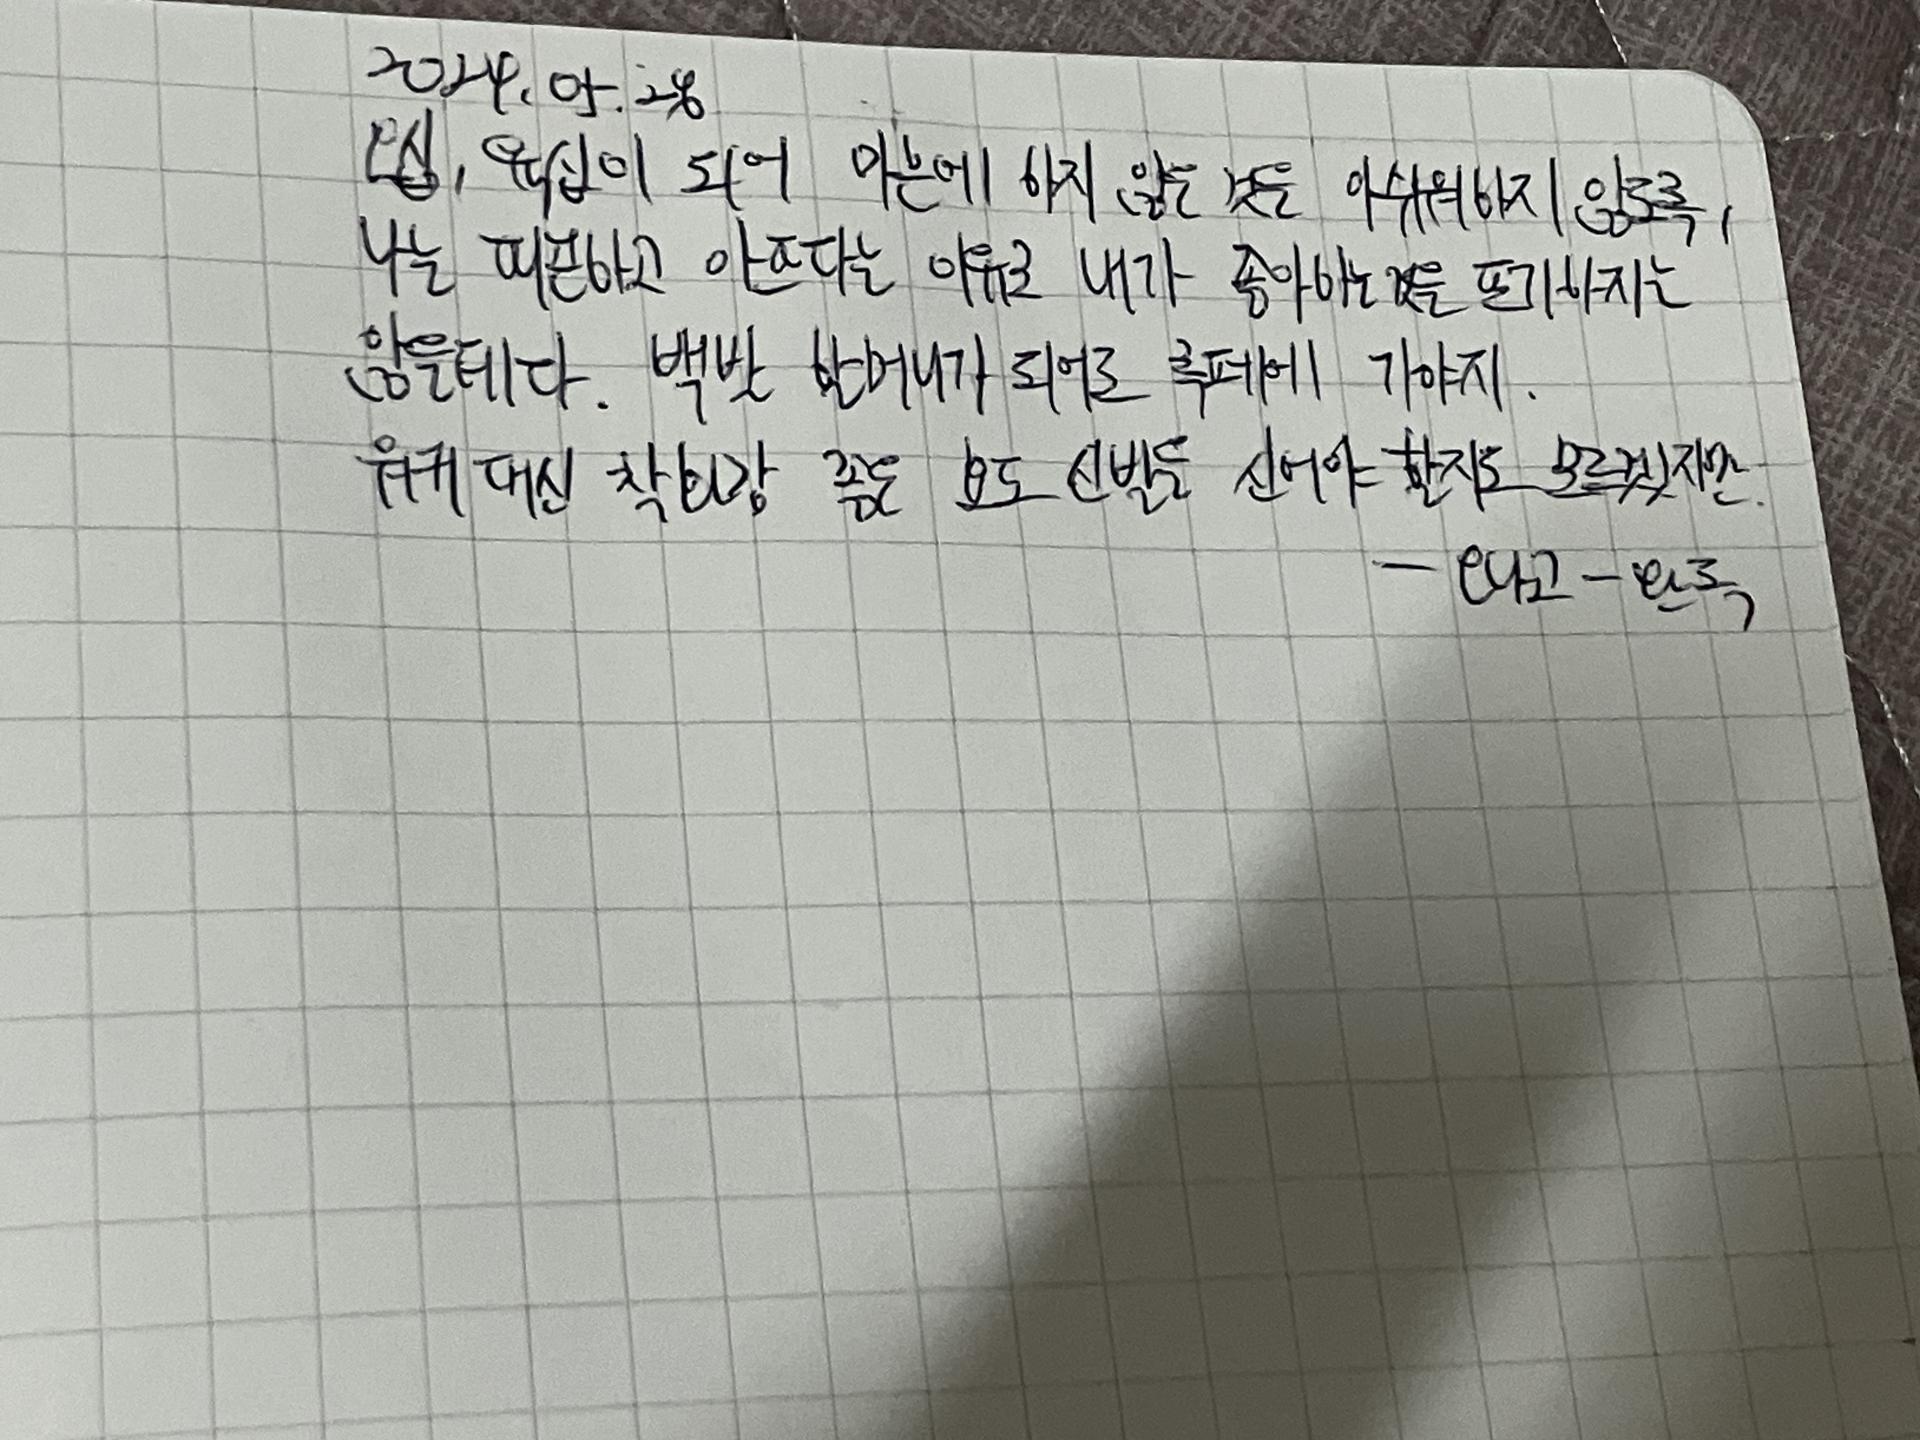 2024. 05. 28
오십, 육십이 되어 마흔에 하지 않은 것을 아쉬워하지 않도록,
나는 피곤하고 아프다는 이유로 내가 좋아하는 것을 포기하지는
않을테다. 백발 할머니가 되어도 룩페에 가야지.
워커 대신 착화감 좋은 효도 신발을 신어야 할지도 모르겠지만.